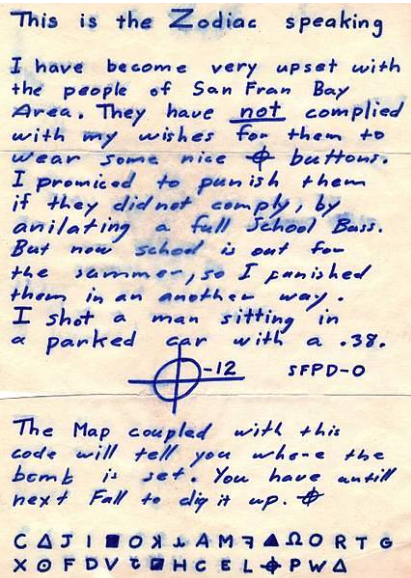 This is the Zodiac speaking
I have become very upset with
the people of San Fran Bay
Area. They have not complied
with my wishes for them to
wear some nice ⌖ buttons.
I promiced to punish them
if they did not comply, by
anilating a full School Buss.
But now school is out for
the summer, so I punished
them in an another way.
I shot a man sitting in
a parked car with a .38.
⌖-12 SFPD-0
The Map coupled with this
code will tell you where the
bomb is set. You have untill
next Fall to dig it up. ⌖
C Δ J I ■ O ꓘ ⅄ A M ꟻ ▲ Ω O R T G
X ⊙ F D V ⊞ H C E L ⌖ P W Δ